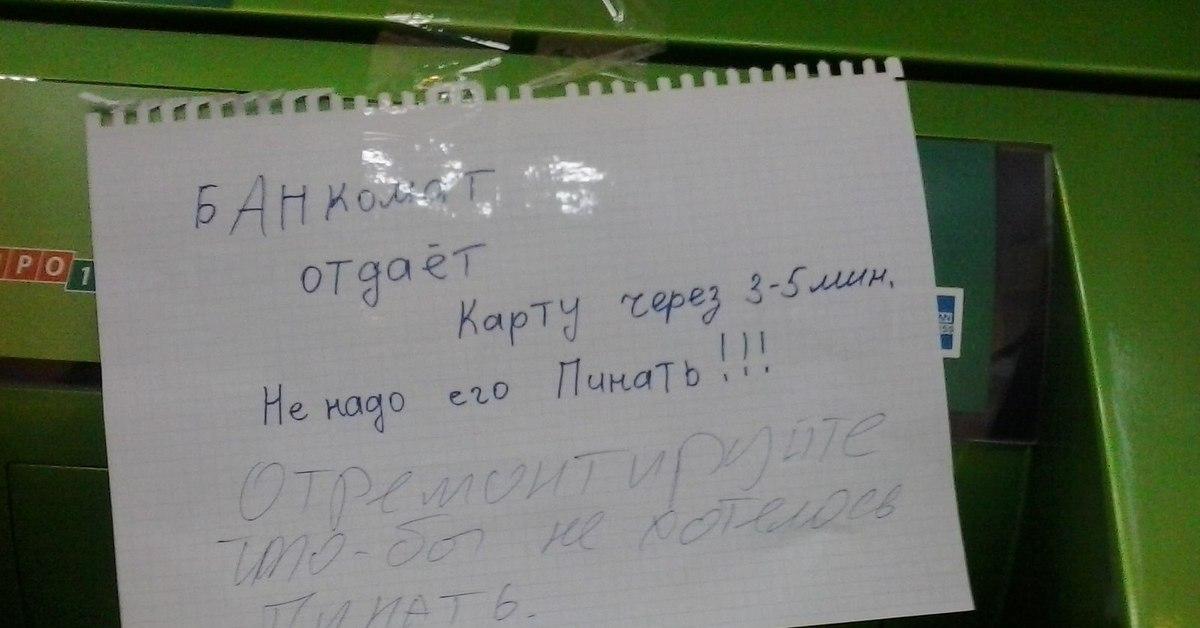 БАНкомат
отдаёт
Карту через 3-5 мин.
Не надо его Пинать!!!
Отремонтируйте
што-бы не хотелось
Пинать.
РО 1